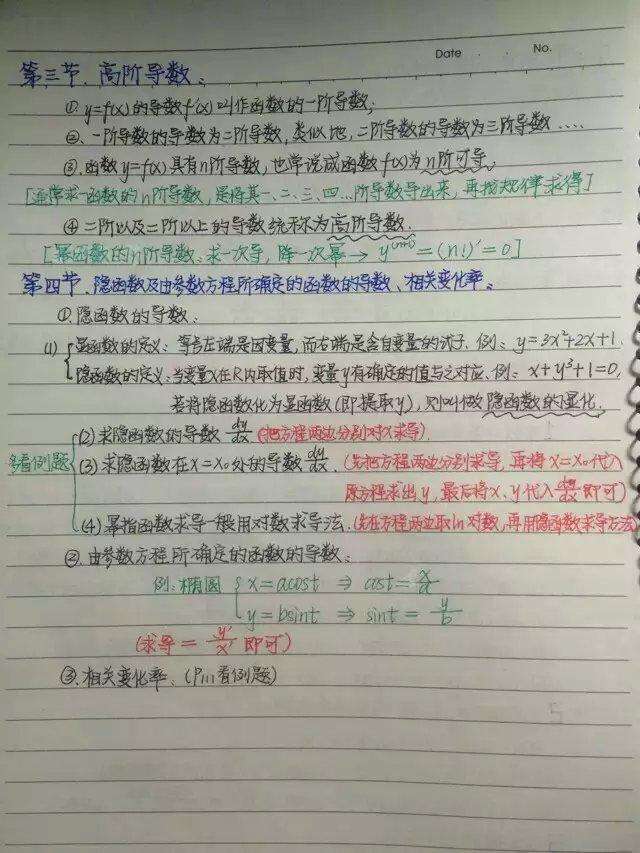 Date No.
第三节、高阶导数:
①. y=f(x)的导数f'(x)叫作函数的一阶导数;
②、一阶导数的导数为二阶导数,类似地,二阶导数的导数为三阶导数....
③.函数y=f(x)具有n阶导数,也常说成函数f(x)为n阶可导.
[通常求一函数的n阶导数,是将其一、二、三、四...阶导数导出来,再找规律求得]
④二阶以及二阶以上的导数统称为高阶导数.
[幂函数的n阶导数:求一次导,降一次幂→ y⁽ⁿ⁺¹⁾=(n!)'=0]
第四节、隐函数及由参数方程所确定的函数的导数、相关变化率:
①.隐函数的导数:
(1) 显函数的定义:等号左端是因变量,而右端是含自变量的式子.例:y=3x²+2x+1.
隐函数的定义:当变量x在R内取值时,变量y有确定的值与之对应.例:x+y³+1=0.
若将隐函数化为显函数(即提取y),则叫做隐函数的显化.
多看例题
(2)求隐函数的导数dy/dx (把方程两边分别对x求导).
(3)求隐函数在x=x₀处的导数dy/dx.(先把方程两边分别求导,再将x=x₀代入
原方程求出y,最后将x、y代入dy/dx即可)
(4)幂指函数求导一般用对数求导法.(先在方程两边取ln对数,再用隐函数求导方法)
②.由参数方程所确定的函数的导数:
例:椭圆 { x=acost ⇒ cost=x/a
y=bsint ⇒ sint=y/b
(求导=y'/x'即可)
③.相关变化率、(P111看例题)